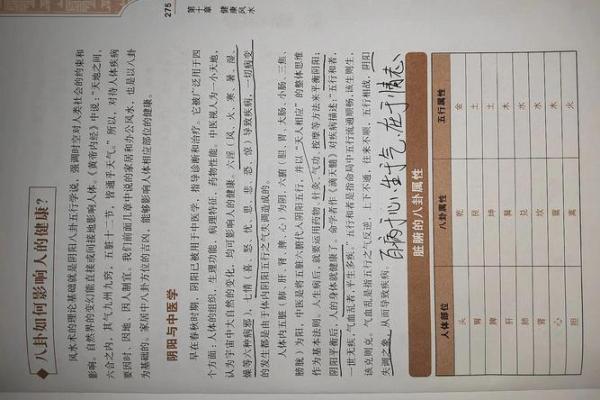 275
第十章 健康风水
八卦如何影响人的健康？
风水术的理论基础就是阴阳八卦五行学说，强调时空对人类社会的约束和
影响。自然界的变幻能直接或间接地影响人体。《黄帝内经》中说："天地之间，
六合之内，其气九州九窍，五脏十二节，皆通乎天气。"所以，对待人体疾病
要因时、因地、因人制宜。我们前面几章中说的家居和办公风水，也是以八卦
为基础的。家居中八卦方位的吉凶，能够影响人体相应部位的健康。
阴阳与中医学
早在春秋时期，阴阳已被用于中医学，指导诊断和治疗。它被广泛用于四
个方面：人体的组织，生理功能，病理特征，药物性能。中医视人为小天地，
认为宇宙中大自然的变化，均可影响人的健康。六淫（风、火、寒、暑、湿、
燥等六种病邪），七情（喜、怒、忧、思、悲、恐、惊）导致疾病，一切病变
的发生都是由于体内阴阳五行之气失调造成的。
人体内五脏（肺、肝、肾、脾、心）为阴，六腑（胆、胃、大肠、小肠、三焦、
膀胱）为阳，中医是将五脏六腑代入阴阳五行，并以"天人相应"的整体思维
作为基本法则。人生病后，就要运用药物、针灸、气功、按摩等方法来平衡阴阳；
阴阳平衡后，人的身体就健康了。命学者作《滴天髓》对疾病者描述："五行和者，
一世无疾。气血乱者，平生多疾。"五行和者是指命局中五行流通顺畅，该生则生，
该克则克。气血乱是指五行之气反逆，上下不通，往来不顺，五行相战，阴阳
失调之象，从而导致疾病。
百病于心，生于气，在于情志
脏腑的八卦属性
人体部位 八卦属性 五行属性
头 乾 金
胃 艮 土
脾 坤 土
肝 巽 木
肺 兑 水
肾 坎 水
心 震 木
胆 离 火